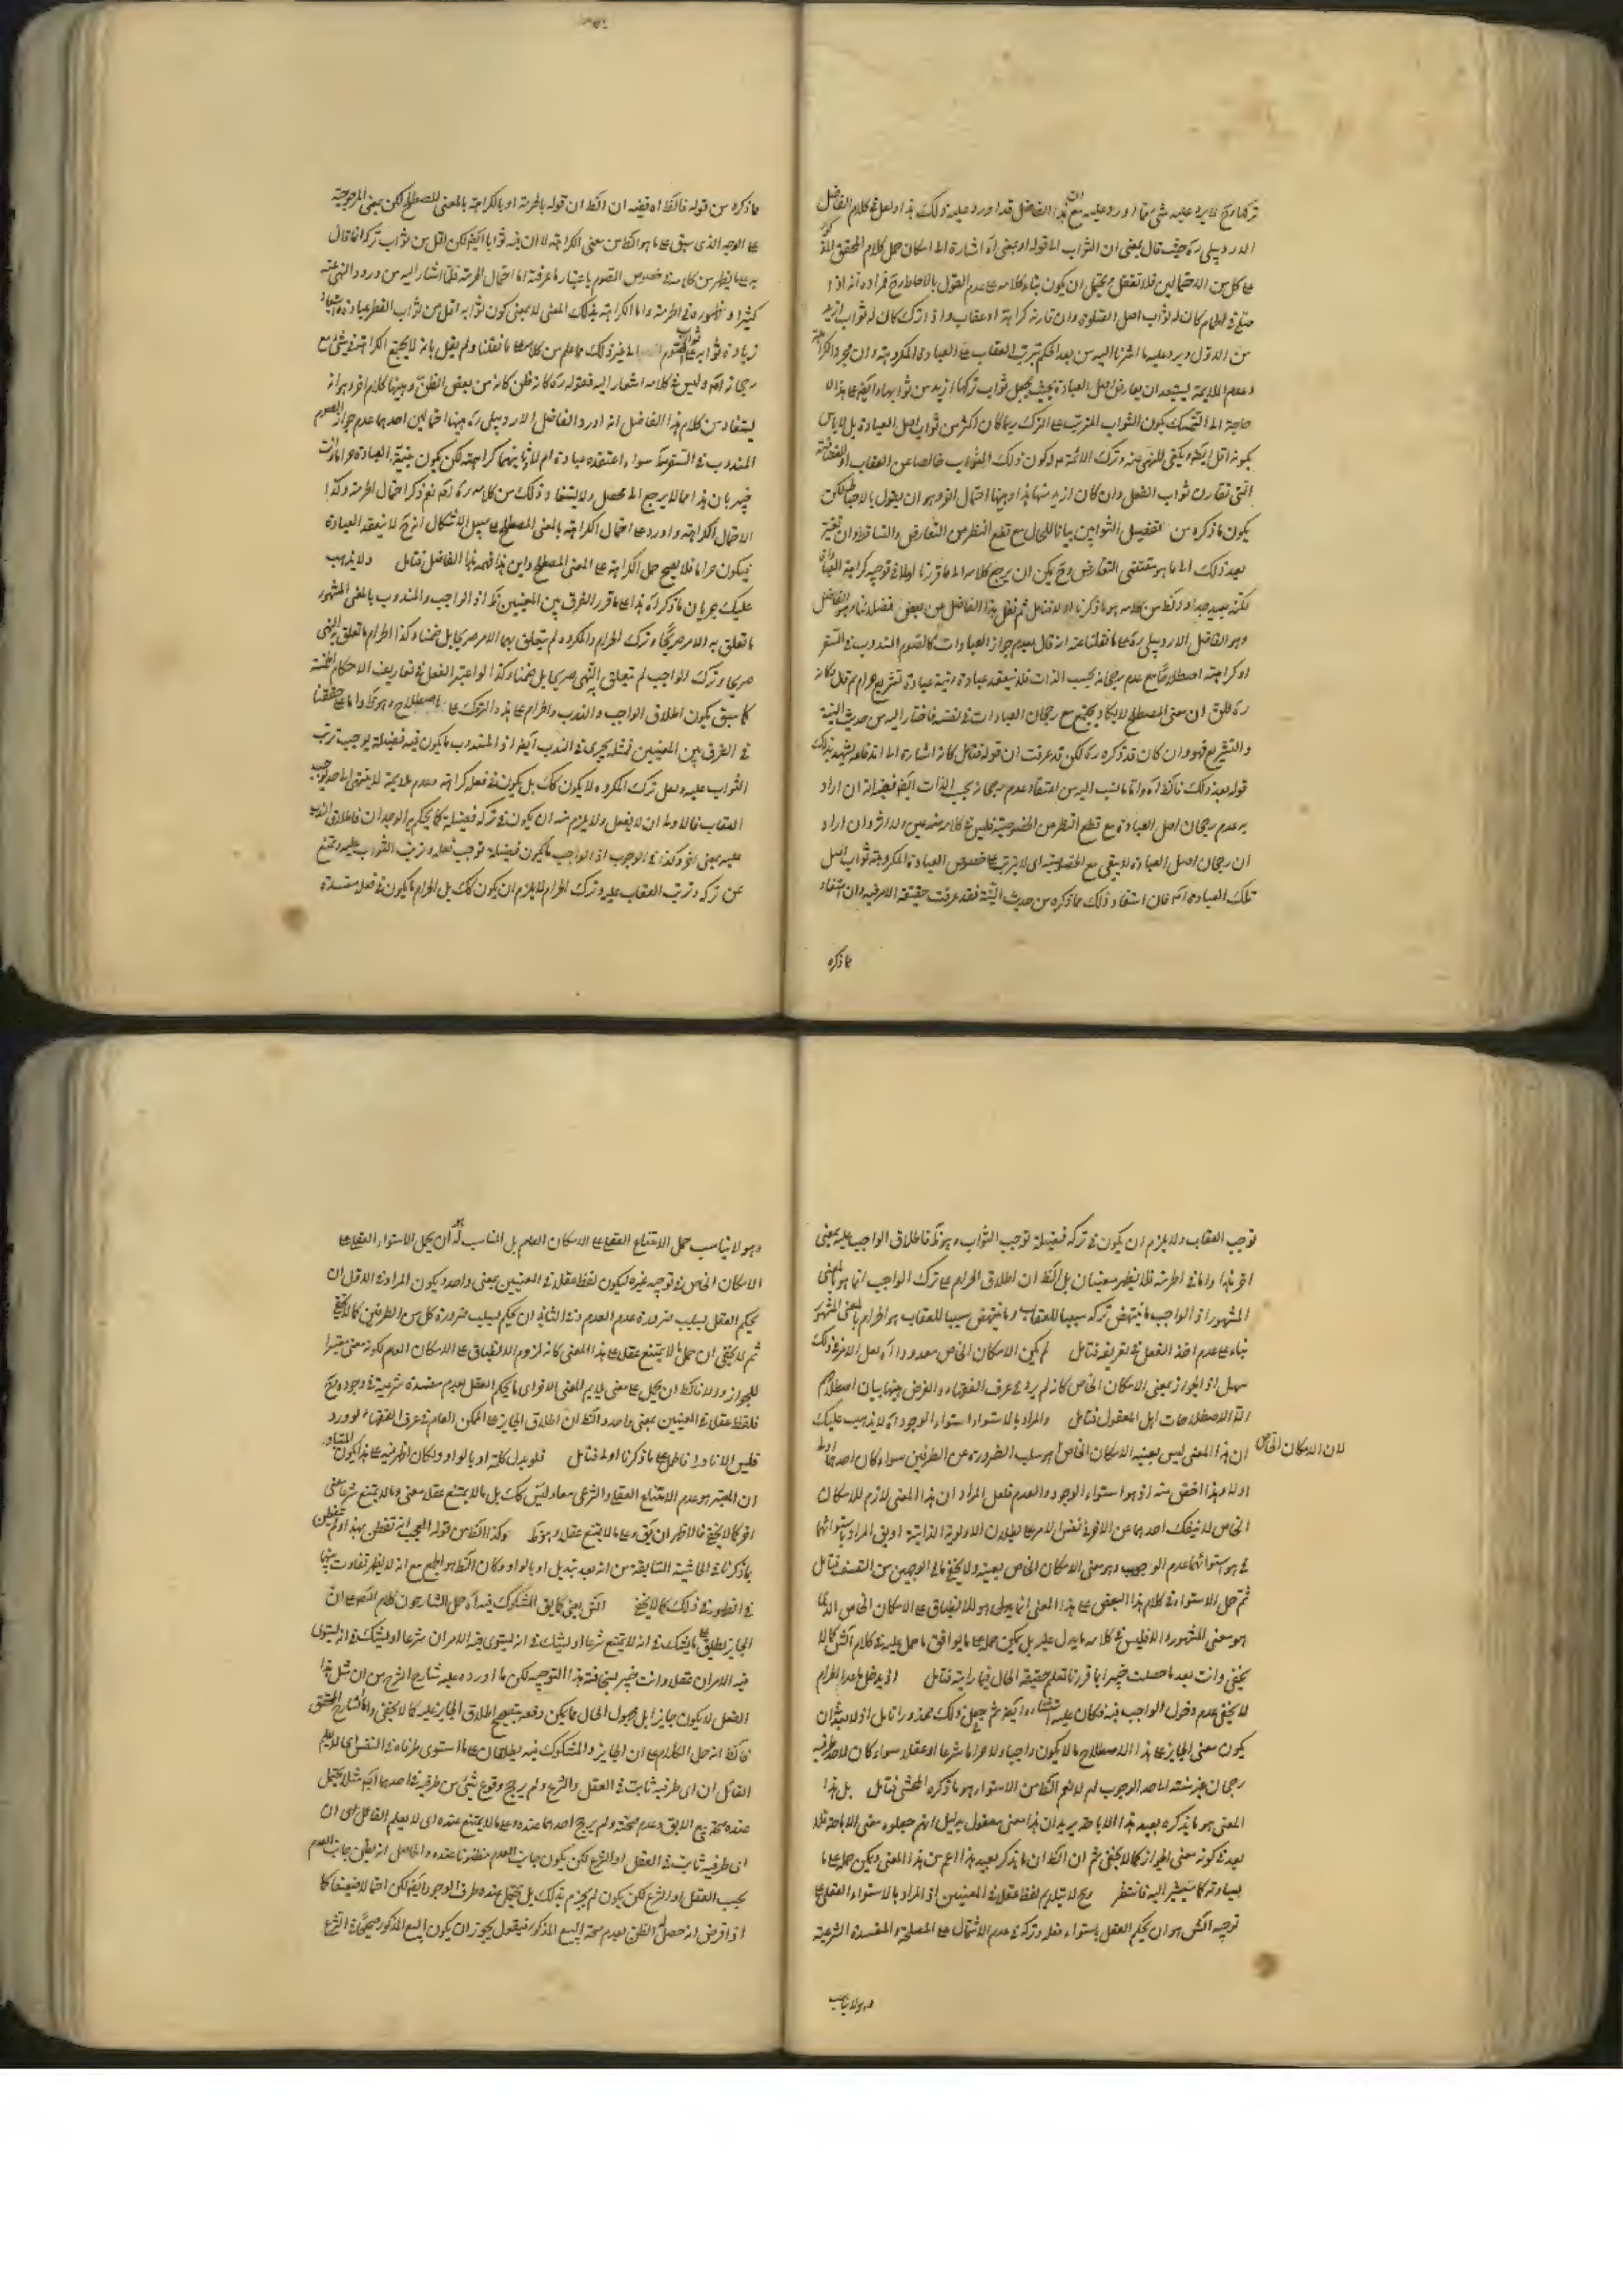 تركها وح لا يرد عليه شئ مما اورد عليه مع ان هذا الفاضل قد اورد عليه ذلك هذا ولعل في كلام الفاضل
الاردبيلي ره حيث قال يعني ان الثواب الى قوله او بمعنى آه اشارة الى امكان حمل كلام المحقق
على كل من الاحتمالين فلا تغفل ويحتمل ان يكون بناء كلامه على عدم القول بالاحباط وح فمراده انه اذا
صلى في الحمام كان له ثواب اصل الصلوة وان قارنه كراهة او عقاب واذا ترك كان له ثواب ازيد
من الاول ويرد عليه ما اشرنا اليه من بعد الحكم بترتب العقاب على العبادة المكروهة وان مجرد الكراهة
وعدم الملايمة ليستبعد ان يعارض اصل العبادة بحيث يجعل ثواب تركها ازيد من ثوابها وايضا على هذا لا
حاجة الى التمسك بكون الثواب المترتب على الترك ربما كان اكثر من ثواب اصل العبادة بل لا باس
بكونه اقل ايضا ويكفي للنهي عنه وترك الائمة ع م كون ذلك الثواب خالصا عن العقاب او المنقصة
التي تقارن ثواب الفعل وان كان ازيد منها هذا وهيهنا احتمال اخر وهو ان يقول بالاحباط لكن
يكون ما ذكره من تفضيل الثوابين بيانا للحال مع قطع النظر من التعارض والتساقط وان
بعد ذلك الى ما هو مقتضى التعارض وح يمكن ان يرجع كلامه الى ما قررنا اولا في توجيه كراهة العبادة
لكنه بعيد جدا والظ من كلامه هو ما ذكرنا اولا فتامل ثم نقل هذا الفاضل عن بعض فضلاء عصره الفاضل
وهو الفاضل الاردبيلي ره على ما نقلنا عنه انه قال بعدم جواز العبادات كالصوم المندوب في السفر
او كراهته اصطلاحا مع عدم رجحانه بحسب الذات فلا ينعقد عبادة ونية عبادة تشريع حرام ثم قال وكانه
ره ظن ان معنى المصطلح لا يكاد يجتمع مع رجحان العبادات في نفسه فاختار اليه من حديث النية
والتشريع فهو وان كان قد ذكره ره لكن قد عرفت ان قوله فتامل كانه اشارة الى اندفاعه يشهد بذلك
قوله بعد ذلك فالظ آه واما ما نسب اليه من اعتقاد عدم رجحانه بحسب الذات ايضا ففيه انه ان اراد
به عدم رجحان اصل العبادة مع قطع النظر من الخصوصية فليس في كلامه منه عين ولا اثر وان اراد
ان رجحان اصل العبادة لا يبقى مع الخصوصية اي لا يترتب على خصوص العبادة المكروهة ثواب اصل
تلك العبادة آه فان استفاد ذلك مما ذكره من حديث النية فقد عرفت حقيقة الامر فيه وان استفاد
مما ذكره
مما ذكره من قوله فالظ اه ففيه ان الظ ان قوله بالحرمة او بالكراهة بالمعنى المصطلح لكن بمعنى المرجوحية
على الوجه الذي سبق على ما هو الظ من معنى الكراهة لا ان فيه ثوابا ايضا لكن اقل من ثواب تركه انما قال
به على ما يظهر من كلامه في خصوص الصوم باعتبار ما عرفته اما احتمال الحرمة فلما اشار اليه من ورود النهي عنه
كثيرا وظهوره في الحرمة واما الكراهة بذلك المعنى لا بمعنى كون ثوابه اقل من ثواب الفطر عبادة
زيادة ثوابه على الصوم الى غير ذلك مما علم من كلامه على ما نقلنا ولم يقل بانه لا يجتمع الكراهة في شئ مع
رجحانه آه وليس في كلامه اشعار اليه فقوله ره كانه ظن كانه من بعض الظن وهيهنا كلام اخر وهو انه
يستفاد من كلام هذا الفاضل انه اورد الفاضل الاردبيلي ره هيهنا احتمالين احدهما عدم جواز الصوم
المندوب في السفر سواء اعتقده عبادة ام لا وثانيهما كراهته لكن يكون بنية العبادة حراما وانت
خبير بان هذا مما لا يرجع الى محصل ولا يستفاد ذلك من كلامه ره آه نعم ذكر احتمال الحرمة وكذا
الاحتمال الكراهة واورد على احتمال الكراهة بالمعنى المصطلح على سبيل الاشكال انه ح لا ينعقد العبادة
فيكون حراما فلا يصح حمل الكراهة على المعنى المصطلح واين هذا فهمه هذا الفاضل فتامل ولا يذهب
عليك جريان ما ذكراه هذا على ما قرر الفرق بين المعنيين ظ اذ الواجب والمندوب بالمعنى المشهور
ما تعلق به الامر صريحا وترك الحرام والمكروه لم يتعلق بهما الامر صريحا بل ضمنا وكذا الحرام ما تعلق به النهي
صريحا وترك الواجب لم يتعلق به النهي صريحا بل ضمنا وكذا لو اعتبر الفعل في تعاريف الاحكام الخمسة
كما سبق يكون اطلاق الواجب والندب والحرام على هذه التروك على اصطلاح وهو ظ واما على ما حققنا
في الفرق بين المعنيين فمثله يجري في الندب ايضا اذ المندوب ما يكون فيه فضيلة يوجب ترتب
الثواب عليه ولعل ترك المكروه لا يكون كك بل يكون في فعله كراهة وعدم ملايمة لا ينتهي الى حد يوجب
العقاب فالاولى ان لا يفعل ولا يلزم منه ان يكون في تركه فضيلة كما يحكم به الوجدان فاطلاق الندب
عليه بمعنى اخر وكذا في الوجوب اذ الواجب ما يكون فضيلة توجب فعله وترتب الثواب عليه وتمنع
عن تركه وترتب العقاب عليه وترك الحرام لا يلزم ان يكون كك بل الحرام ما يكون في فعله مفسدة
توجب العقاب ولا يلزم ان يكون في تركه فضيلة توجب الثواب وهو ظ فاطلاق الواجب عليه بمعنى
اخر هذا واما في الحرمة فلا يظهر معنيان بل الظ ان اطلاق الحرام على ترك الواجب انما هو بالمعنى
المشهور اذ الواجب ما ينتهض تركه سببا للعقاب وما ينتهض سببا للعقاب هو الحرام بالمعنى المشهور
بناء على عدم اخذ الفعل في تعريفه فتامل لم يكن الامكان الخاص معدودا آه لعل الامر في ذلك
سهل اذ الجواز بمعنى الامكان الخاص كانه لم يرد في عرف الفقهاء والغرض هيهنا بيان اصطلاحهم
لا الاصطلاحات اهل المعقول فتامل والمراد بالاستواء استواء الوجود آه لا يذهب عليك
ان هذا المعنى ليس بعينه الامكان الخاص هو سلب الضرورة عن الطرفين سواء كان احدهما اولى
لان الامكان الخاص
او لا وهذا اخص منه اذ هو استواء الوجود والعدم فلعل المراد ان هذا المعنى لازم للامكان
الخاص لا ينفك احدهما عن الاخر في نفس الامر على بطلان الاولوية الذاتية او يق المراد باستوائهما
في هو استوائهما عدم الوجوب وهو معنى الامكان الخاص بعينه ولا يخفى ما في الوجهين من التعسف فتامل
ثم حمل الاستواء في كلام هذا البعض على هذا المعنى انما يدعى هو للانطباق على الامكان الخاص الذي
هو معنى المشهور والا فليس في كلامه ما يدل عليه بل يمكن حمله على ما يوافق ما حمل عليه في كلام الش كما لا
يخفى وانت بعد ما حصلت خبرا بما قررنا تعلم حقيقة الحال فيما رايته فتامل اذ يدخل ما عدا الحرام
لا يخفى عدم دخول الواجب فيه فكان عليه استثناءه ايضا ثم جعل ذلك محذورا تامل اذ لا استبعد ان
يكون معنى الجايز على هذا الاصطلاح ما لا يكون واجبا ولا حراما شرعا او عقلا سواء كان لاحد طرفيه
رجحان غير منته الى حد الوجوب ام لا نعم الظ من الاستواء هو ما ذكره المحشي فتامل بل هذا
المعنى هو ما يذكره بعيد هذا الاباحة يريد ان هذا معنى معقول بدليل انهم جعلوه معنى الاباحة فلا
بعد في كونه معنى الجواز كما لا يخفى ثم ان الظ ان ما يذكر بعيد هذا اعم من هذا المعنى ويمكن حمله على ما
يساوته كما سيشير اليه فانتظر وح لا يتلايم لفظ عقلا في المعنيين اذ المراد بالاستواء العقلي على
توجيه الش هو ان يحكم العقل باستواء فعله وتركه في عدم الاشتمال على المصلحة والمفسدة الشرعية
وهو لا يناسب
وهو لا يناسب حمل الامتناع العقلي على الامكان العام بل المناسب له ان يحمل الاستواء العقلي على
الامكان الخاص في توجيه غيره ليكون لفظ عقلا في المعنيين بمعنى واحد ويكون المراد في الاول ان
يحكم العقل بسلب ضرورة عدم العدم وفي الثاني ان يحكم بسلب ضرورة كل من الطرفين كما لا يخفى
ثم لا يخفى ان حمل ما لا يمتنع عقلا على هذا المعنى كانه لزوم الانطباق على الامكان العام لكونه معنى معتبرا
للجواز والا فالظ ان يحمل على معنى يلايم المعنى الاخر اي ما يحكم العقل بعدم مفسدة شرعية في وجوده وح
فلفظ عقلا في المعنيين بمعنى واحد والظ ان اطلاق الجايز على الممكن العام في عرف الفقهاء لو ورد
فليس الا نادرا فاطلق على ما ذكرنا اولا فتامل فلو بدل كلمة او بالواو ولكان اظهر فيه على هذا يكون المتبادر
ان المعتبر هو عدم الامتناع العقلي والشرعي معا وليس كك بل ما لا يمتنع عقلا معنى وما لا يمتنع شرعا معنى
اخر كما لا يخفى فالاظهر ان يق وعلى ما لا يمتنع عقلا وهو ظ وكذا الظ من قوله العجب انه تفطن بهذا ولم يتفطن
بما ذكرنا في الحاشية السابقة من انه بعد تبديل او بالواو وكان الظ هو الجمع مع انه لا يظهر تفاوت بينهما
في الظهور في ذلك كما لا يخفى الش يعني كما يق المشكوك فيه آه حمل الشارحون كلام المص على ان
الجايز يطلق على ما يشك في انه لا يمتنع شرعا او يشك في انه يستوي فيه الامران شرعا او يشك في انه يستوي
فيه الامران عقلا وانت خبير بسخافة هذا التوجيه لكن ما اورده عليه شارح الشرح من ان مثل هذا
الفعل لا يكون جايزا بل مجهول الحال مما يمكن دفعه بتصحيح اطلاق الجايز عليه كما لا يخفى واما الشارح المحقق
فالظ انه حمل الكلام على ان الجايز والمشكوك فيه يطلقان على ما استوى طرفاه في النفس اي لا يعلم
القائل ان اي طرفيه ثابت في العقل والشرع ولم يرجح وقوع شئ من طرفيه على احدهما آه مثلا يحتمل
عنده صحة بيع الابق وعدم صحته ولم يرجح احدهما عنده وعلى ما لا يمتنع عنده اي لا يعلم القائل اي ان
اي طرفيه ثابت في العقل او الشرع لكن يكون جانب العدم مظنونا عنده والحاصل انه يظن جانب العدم
بحسب العقل او الشرع لكن يكون لم يجزم بذلك بل يحتمل عنده طرف الوجود ايضا لكن احتمالا ضعيفا كما
اذا فرض انه حصل له الظن بعدم صحة البيع المذكور فيقول يجوز ان يكون البيع المذكور صحيحا في الشرع